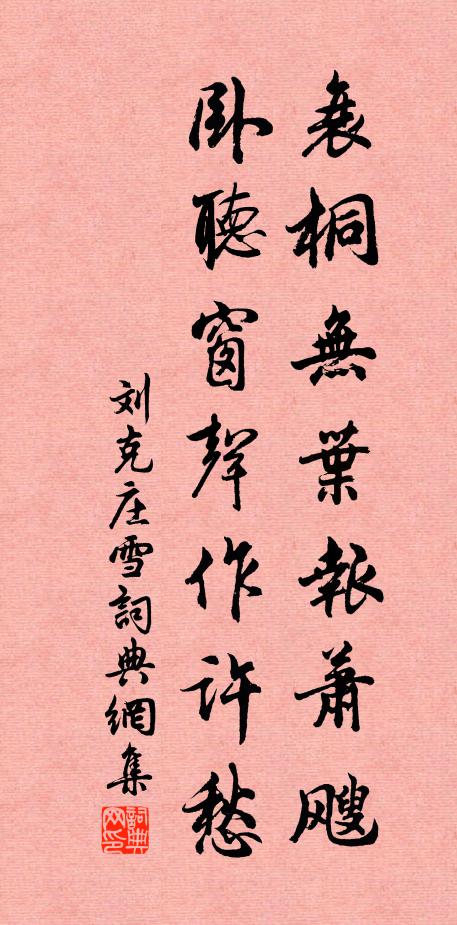 衰桐無葉報蕭颼
卧聽窗聲作許愁
刘克庄雪詞典網集
詞典网印